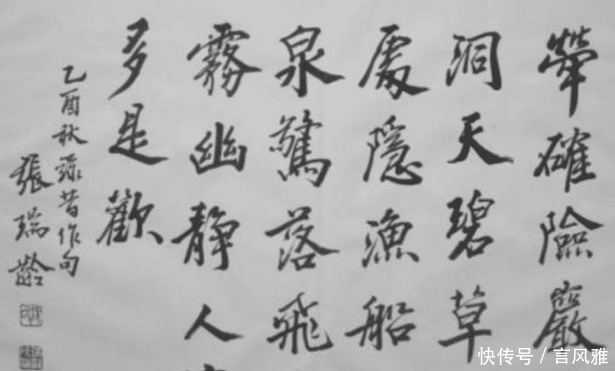 犖確險巖
洞天碧草
處隱漁船
泉驚落飛
霧幽靜人
多是歡
乙酉秋錄昔作句
張瑞齡
快传号/言风雅